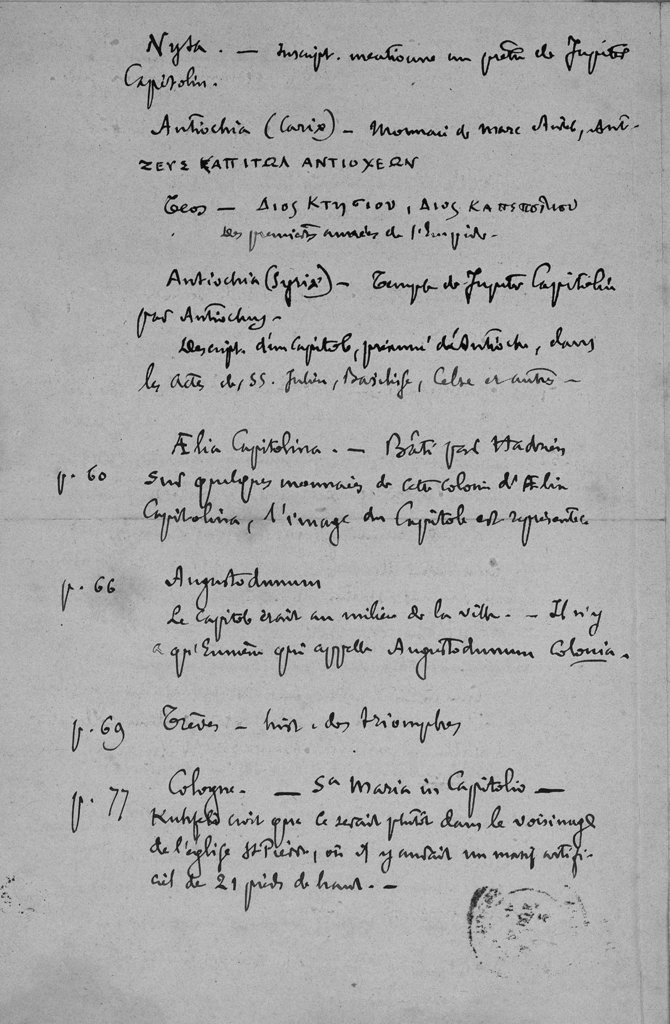 Nysa. — Inscript. mentionne un prêtre de Jupiter
Capitolin.
Antiochia (Cariæ) — Monnaie de Marc Aurèle, Ant-
ΖΕΥΣ ΚΑΠΙΤΩΛ ΑΝΤΙΟΧΕΩΝ
Teos — ΔΙΟΣ ΚΤΗΣΙΟΥ, ΔΙΟΣ
des premières années de l'Empire.
Antiochia (Syriæ) — Temple de Jupiter Capitolin
par Antiochus.
Descript. d'un Capitole, d'Antioche, dans
les Actes de SS. Julien, Basilisse, Celse et autres —
Ælia Capitolina. — Bâti par Hadrien
p. 60 Sur quelques monnaies de cette colonie d'Ælia
Capitolina, l'image du Capitole est représentée
p. 66 Augustodunum
Le Capitole était au milieu de la ville. — Il n'y
a qu'Eumène qui appelle Augustodunum Colonia.
p. 69 Trèves — hist. des triomphes
p. 77 Cologne. — Sa Maria in Capitolio —
Kuhfeld croit que ce serait plutôt dans le voisinage
de l'église St Pierre, où il y aurait un massif artifi-
ciel de 21 pieds de haut. —